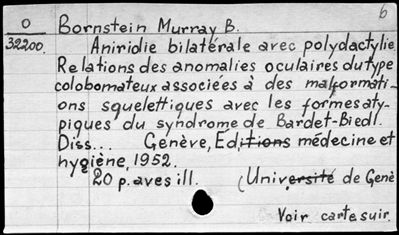 6
O Bornstein Murray B.
32200. Aniridie bilatérale avec polydactylie.
Relations des anomalies oculaires du type
colobomateux associées à des malformati-
ons squelettiques avec les formes aty-
piques du syndrome de Bardet-Biedl.
Diss... Genève, Editions médecine et
hygiène, 1952.
20 p. aves ill. (Université de Genè
Voir carte suir.